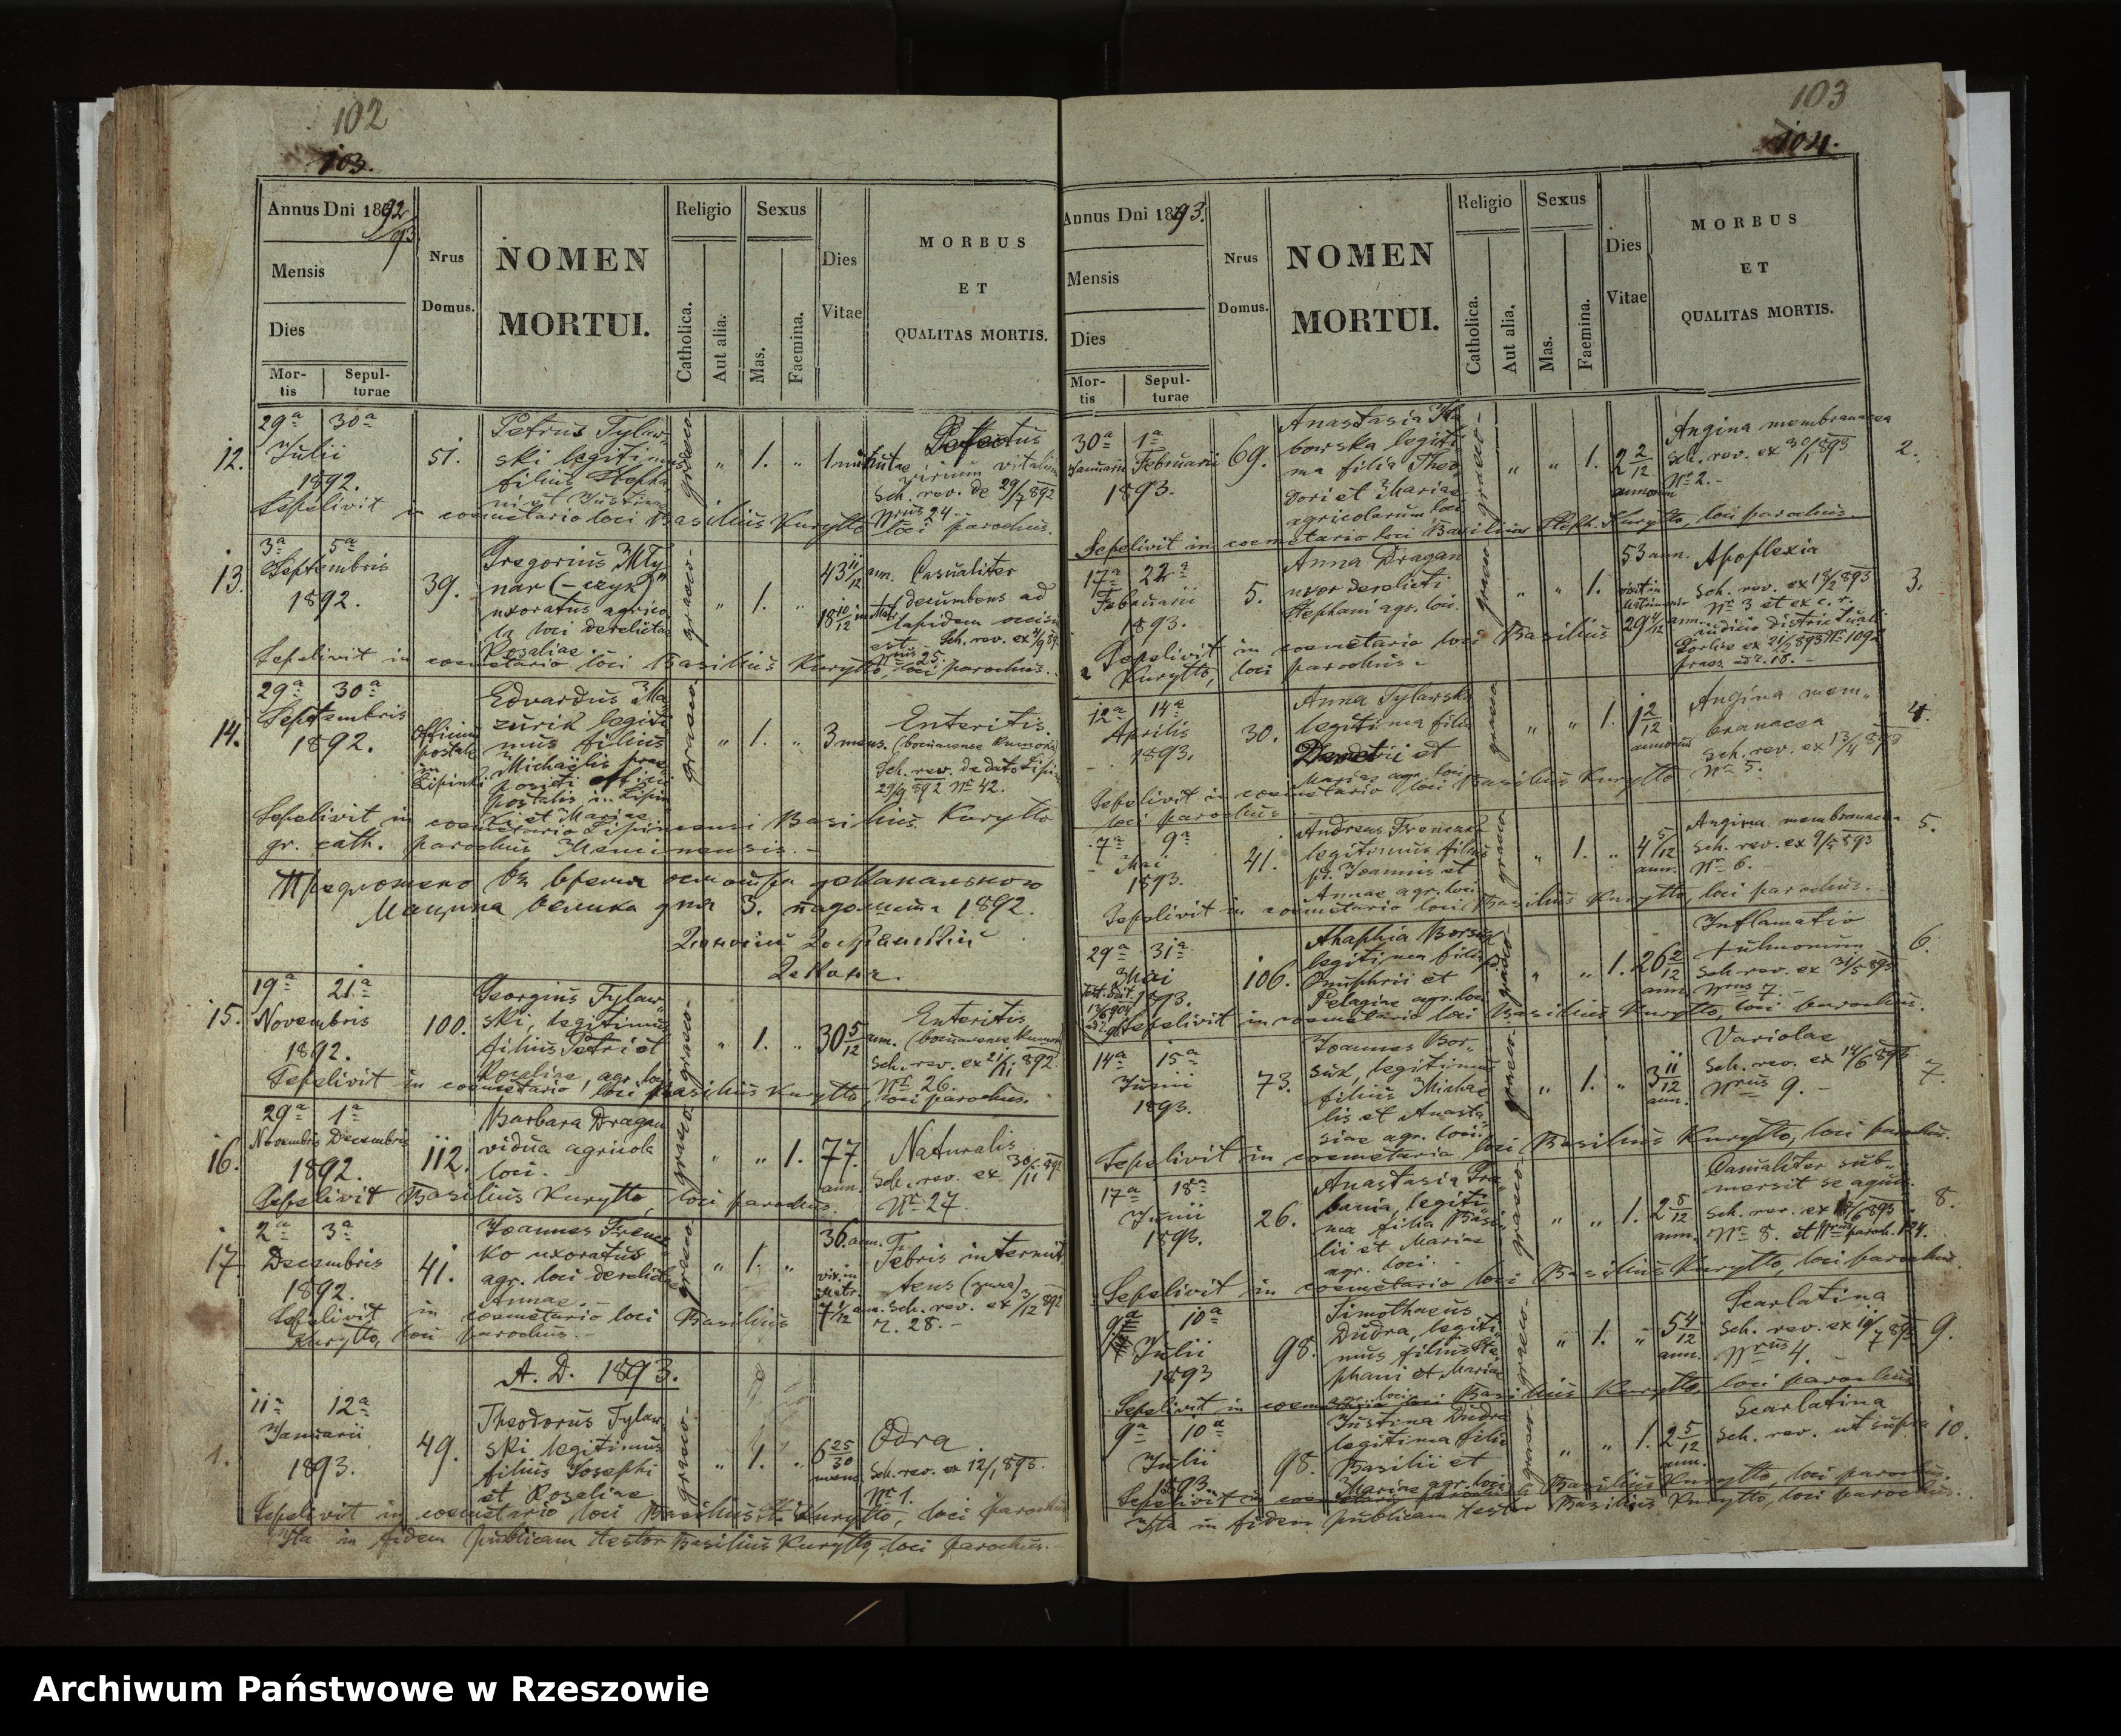 102
103.
Annus Dni 1892/93
Mensis
Dies
Mor-
tis
Sepul-
turae
Nrus
Domus.
NOMEN
MORTUI.
Religio
Catholica.
Aut alia.
Sexus
Mas.
Faemina.
Dies
Vitae
MORBUS
ET
QUALITAS MORTIS.
12.
29ª 30ª
Julii
1892.
51.
Petrus Tylaw-
ski legitimus
filius Stepha
ni et Justinae
graeco
„ 1. „
1 minutae
Defectus
virium vitalium
Sch. rev. de 29/7 892
Nrus 24.
Sepelivit in coemetario loci Basilius Kurytto loci parochus.
13.
3ª 5ª
Septembris
1892.
39.
Gregorius Mły
nar (-czyk)
uxoratus agrico
la loci derelictae
Rosaliae
graeco-
„ 1. „
43 11/12 ann.
18 10/12 in matr.
Casualiter
decumbens ad
lapidem occisus
est - Sch. rev. ex 4/9 892
Nrus 25.
Sepelivit in coemetario loci Basilius Kurytto, loci parochus.
14.
29ª 30ª
Septembris
1892.
Officium
postale
in
Lipinki
Edvardus Ma
zurik legiti
mus filius
Michaëlis prae
positi officii
postalis in Lipin
ki et Mariae
graeco
„ 1. „
3 mens.
Enteritis.
Sch. rev. de dato Lipin
29/9 892 Nr 42.
Sepelivit in coemetario Lipinensi Basilius Kurytto
gr. cath. parochus Mencinensis. -
Предложено въ время
дня 3. 1892.
15.
19ª 21ª
Novembris
1892.
100.
Georgius Tylaw-
ski, legitimus
filius Petri et
Rosaliae, agr. loci
graeco-
„ 1. „
30 5/12 ann.
Enteritis
Sch. rev. ex 21/11 892
Nr 26.
Sepelivit in coemetario loci Basilius Kurytto, loci parochus.
16.
29ª 1ª
Novembris Decembris
1892.
112.
Barbara Dragan
vidua agricola
loci. -
graeco
„ „ 1.
77.
ann.
Naturalis
Sch. rev. ex 30/11 892
Nr 27.
Sepelivit Basilius Kurytto, loci parochus.
17.
2ª 3ª
Decembris
1892.
41.
Joannes Frencz
ko uxoratus
agr. loci derelictae
Annae. -
graeco
„ 1. „
36. ann.
vix. in
Matr.
7 1/12 ann.
Febris intermit
tens
Sch. rev. ex 3/12 892
N. 28. -
Sepelivit in coemetario loci Basilius
Kurytto, loci parochus. -
A. D. 1893.
1.
11ª 12ª
Januarii
1893.
49.
Theodorus Tylaw
ski legitimus
filius Josephi
et Rosaliae
graeco-
„ 1. „
6 25/30
mens.
Odra
Sch. rev. ex 12/1 893.
Nr 1.
Sepelivit in coemetario loci Basilius St. Kurytto, loci parochus
Ita in fidem publicam testor Basilius Kurytto, loci parochus. -
103
104.
Annus Dni 1893.
Mensis
Dies
Mor-
tis
Sepul-
turae
Nrus
Domus.
NOMEN
MORTUI.
Religio
Catholica.
Aut alia.
Sexus
Mas.
Faemina.
Dies
Vitae
MORBUS
ET
QUALITAS MORTIS.
30ª 1ª
Januarii Februarii
1893.
69.
Anastasia Ha
bowska legiti
ma filia Theo
dori et Mariae
agricolarum loci
graeco-
„ „ 1.
2 2/12
annorum
Angina membranacea
Sch. rev. ex 30/1 893
Nr 2. -
2.
Sepelivit in coemetario loci Basilius Steph. Kurytto, loci parochus.
17ª 22ª
Februarii
1893.
5.
Anna Dragan
uxor derelicti
Stephani agr. loci.
graeco
„ „ 1.
53 ann.
vixit in
matrimonio
29 4/12 ann.
Apoplexia
Sch. rev. ex 18/2 893
Nr 3 et ex c. r.
iudicio districtuali
Gorlice ex 21/2 893 Nr 1092
praes. 18. -
3.
Sepelivit in coemetario loci Basilius
Kurytto, loci parochus. -
12ª 14ª
Aprilis
1893.
30.
Anna Tylawska
legitima filia
Demetrii et
Mariae agr. loci
graeco
„ „ 1.
1 2/12
annorum
Angina mem-
branacea
Sch. rev. ex 13/4 893
Nr 5.
4.
Sepelivit in coemetario loci Basilius Kurytto
loci parochus
7ª 9ª
Mai
1893.
41.
Andreas Frenczko
legitimus filius
p.d. Joannis et
Annae agr. loci
graeco
„ 1. „
4 5/12
ann.
Angina membranacea
Sch. rev. ex 9/5 893
Nr 6. -
5.
Sepelivit in coemetario loci Basilius Kurytto, loci parochus. -
29ª 31ª
Mai
1893.
106.
Ahaphia Borsuk
legitima filia
Onuphrii et
Pelagiae agr. loci
graeco
„ „ 1.
26 2/12
ann.
Inflamatio
pulmonum
Sch. rev. ex 31/5 893
Nrus 7. -
6.
Sepelivit in coemetario loci Basilius Kurytto, loci parochus.
14ª 15ª
Junii
1893.
73.
Joannes Bor-
suk, legitimus
filius Michae
lis et Anasta
siae agr. loci.
graeco-
„ 1. „
3 11/12
ann.
Variolae
Sch. rev. ex 14/6 893
Nrus 9. -
7.
Sepelivit in coemetario loci Basilius Kurytto, loci parochus.
17ª 18ª
Junii
1893.
26.
Anastasia Hra
bania, legiti-
ma filia Basi-
lii et Mariae
agr. loci. -
graeco-
„ „ 1.
2 8/12
ann.
Casualiter sub-
mersit se aqua.
Sch. rev. ex 17/6 893
Nr 8. et Nrus paroch. 124.
8.
Sepelivit in coemetario loci Basilius Kurytto, loci parochus.
9ª 10ª
Julii
1893
98.
Timothaeus
Dudra, legiti-
mus filius Ste
phani et Mariae
agr. loci.
graeco-
„ 1. „
5 4/12
ann.
Scarlatina
Sch. rev. ex 10/7 893
Nrus 4. -
9.
Sepelivit in coemetario loci Basilius Kurytto, loci parochus
9ª 10ª
Julii
1893.
98.
Justina Dudra
legitima filia
Basilii et
Mariae agr. loci
graeco-
„ „ 1.
2 5/12
ann.
Scarlatina
Sch. rev. ut supra
10.
Sepelivit in coemetario loci Basilius Kurytto, loci parochus.
Ita in fidem publicam testor Basilius Kurytto, loci parochus.
Archiwum Państwowe w Rzeszowie